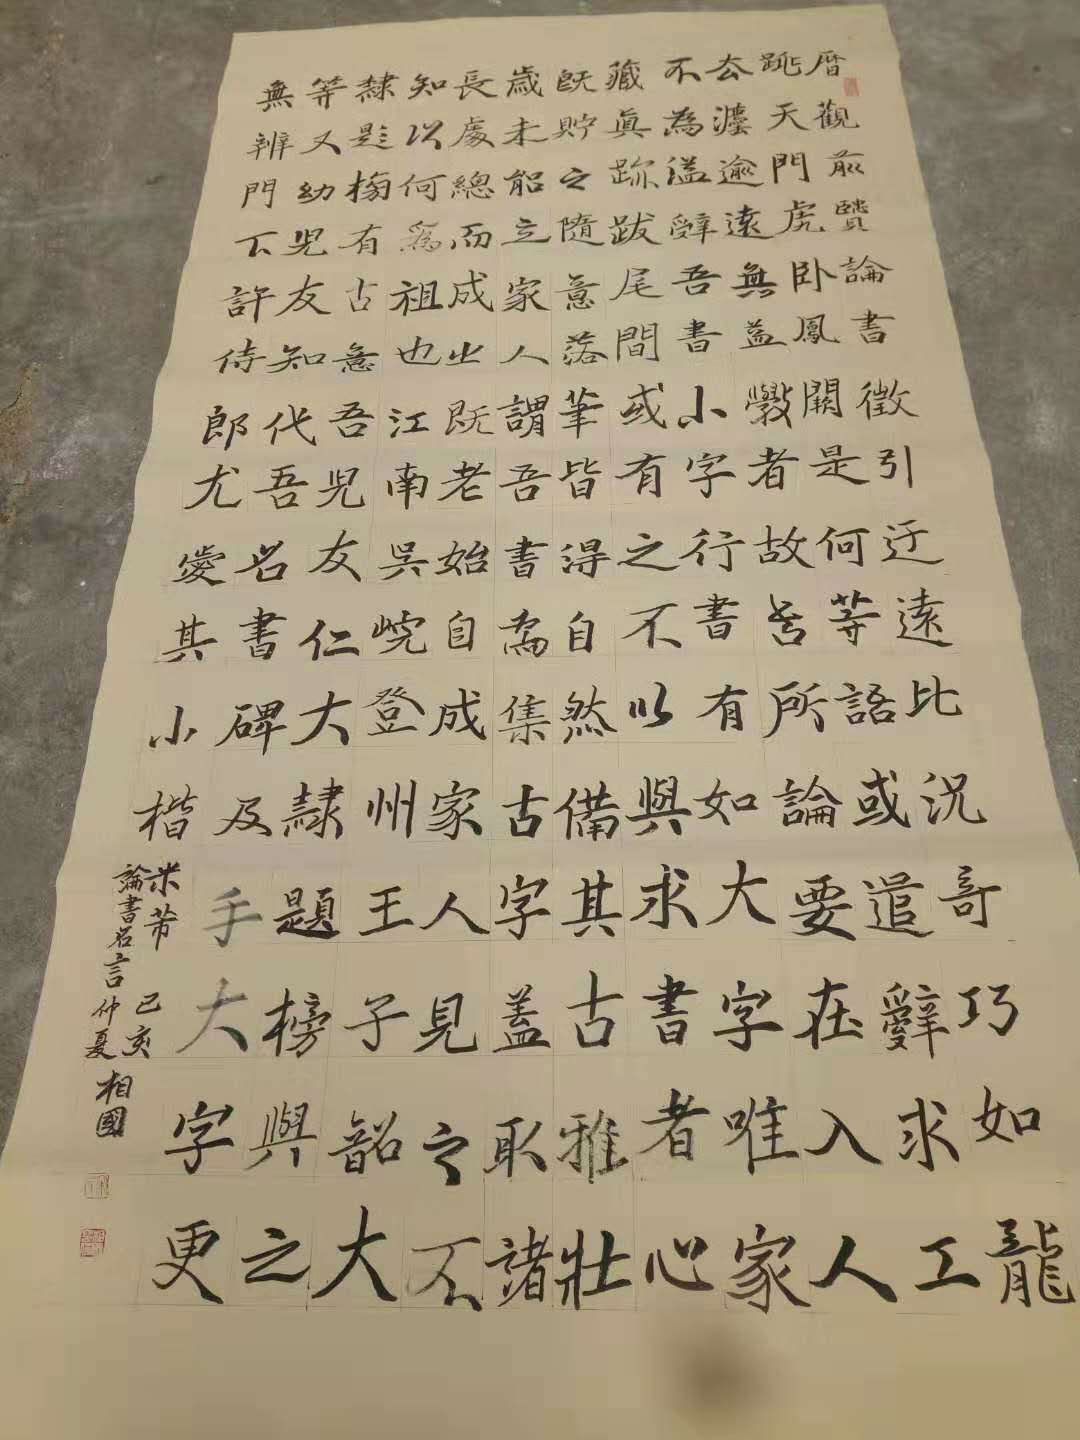 曆觀前賢論書徵引迂遠比況奇巧如龍
跳天門虎卧鳳闕是何等語或遣辭求工
去灋逾遠無益斆者故吾所論要在入人
不為溢辭吾書小字行書有如大字唯家
藏真跡跋尾間或有之不以與求書者心
既貯之隨意落筆皆得自然備其古雅壯
歲未能立家人謂吾書為集古字蓋取諸
長處總而成之既老始自成家人見之不
知以何為祖也江南吳峴登州王子韶大
隸題榜有古意吾兒友仁大隸題榜與之
等又幼兒友知代吾名書碑及手大字更
無辨門下許侍郎尤愛其小楷
米芾
論書名言
己亥
仲夏
相國